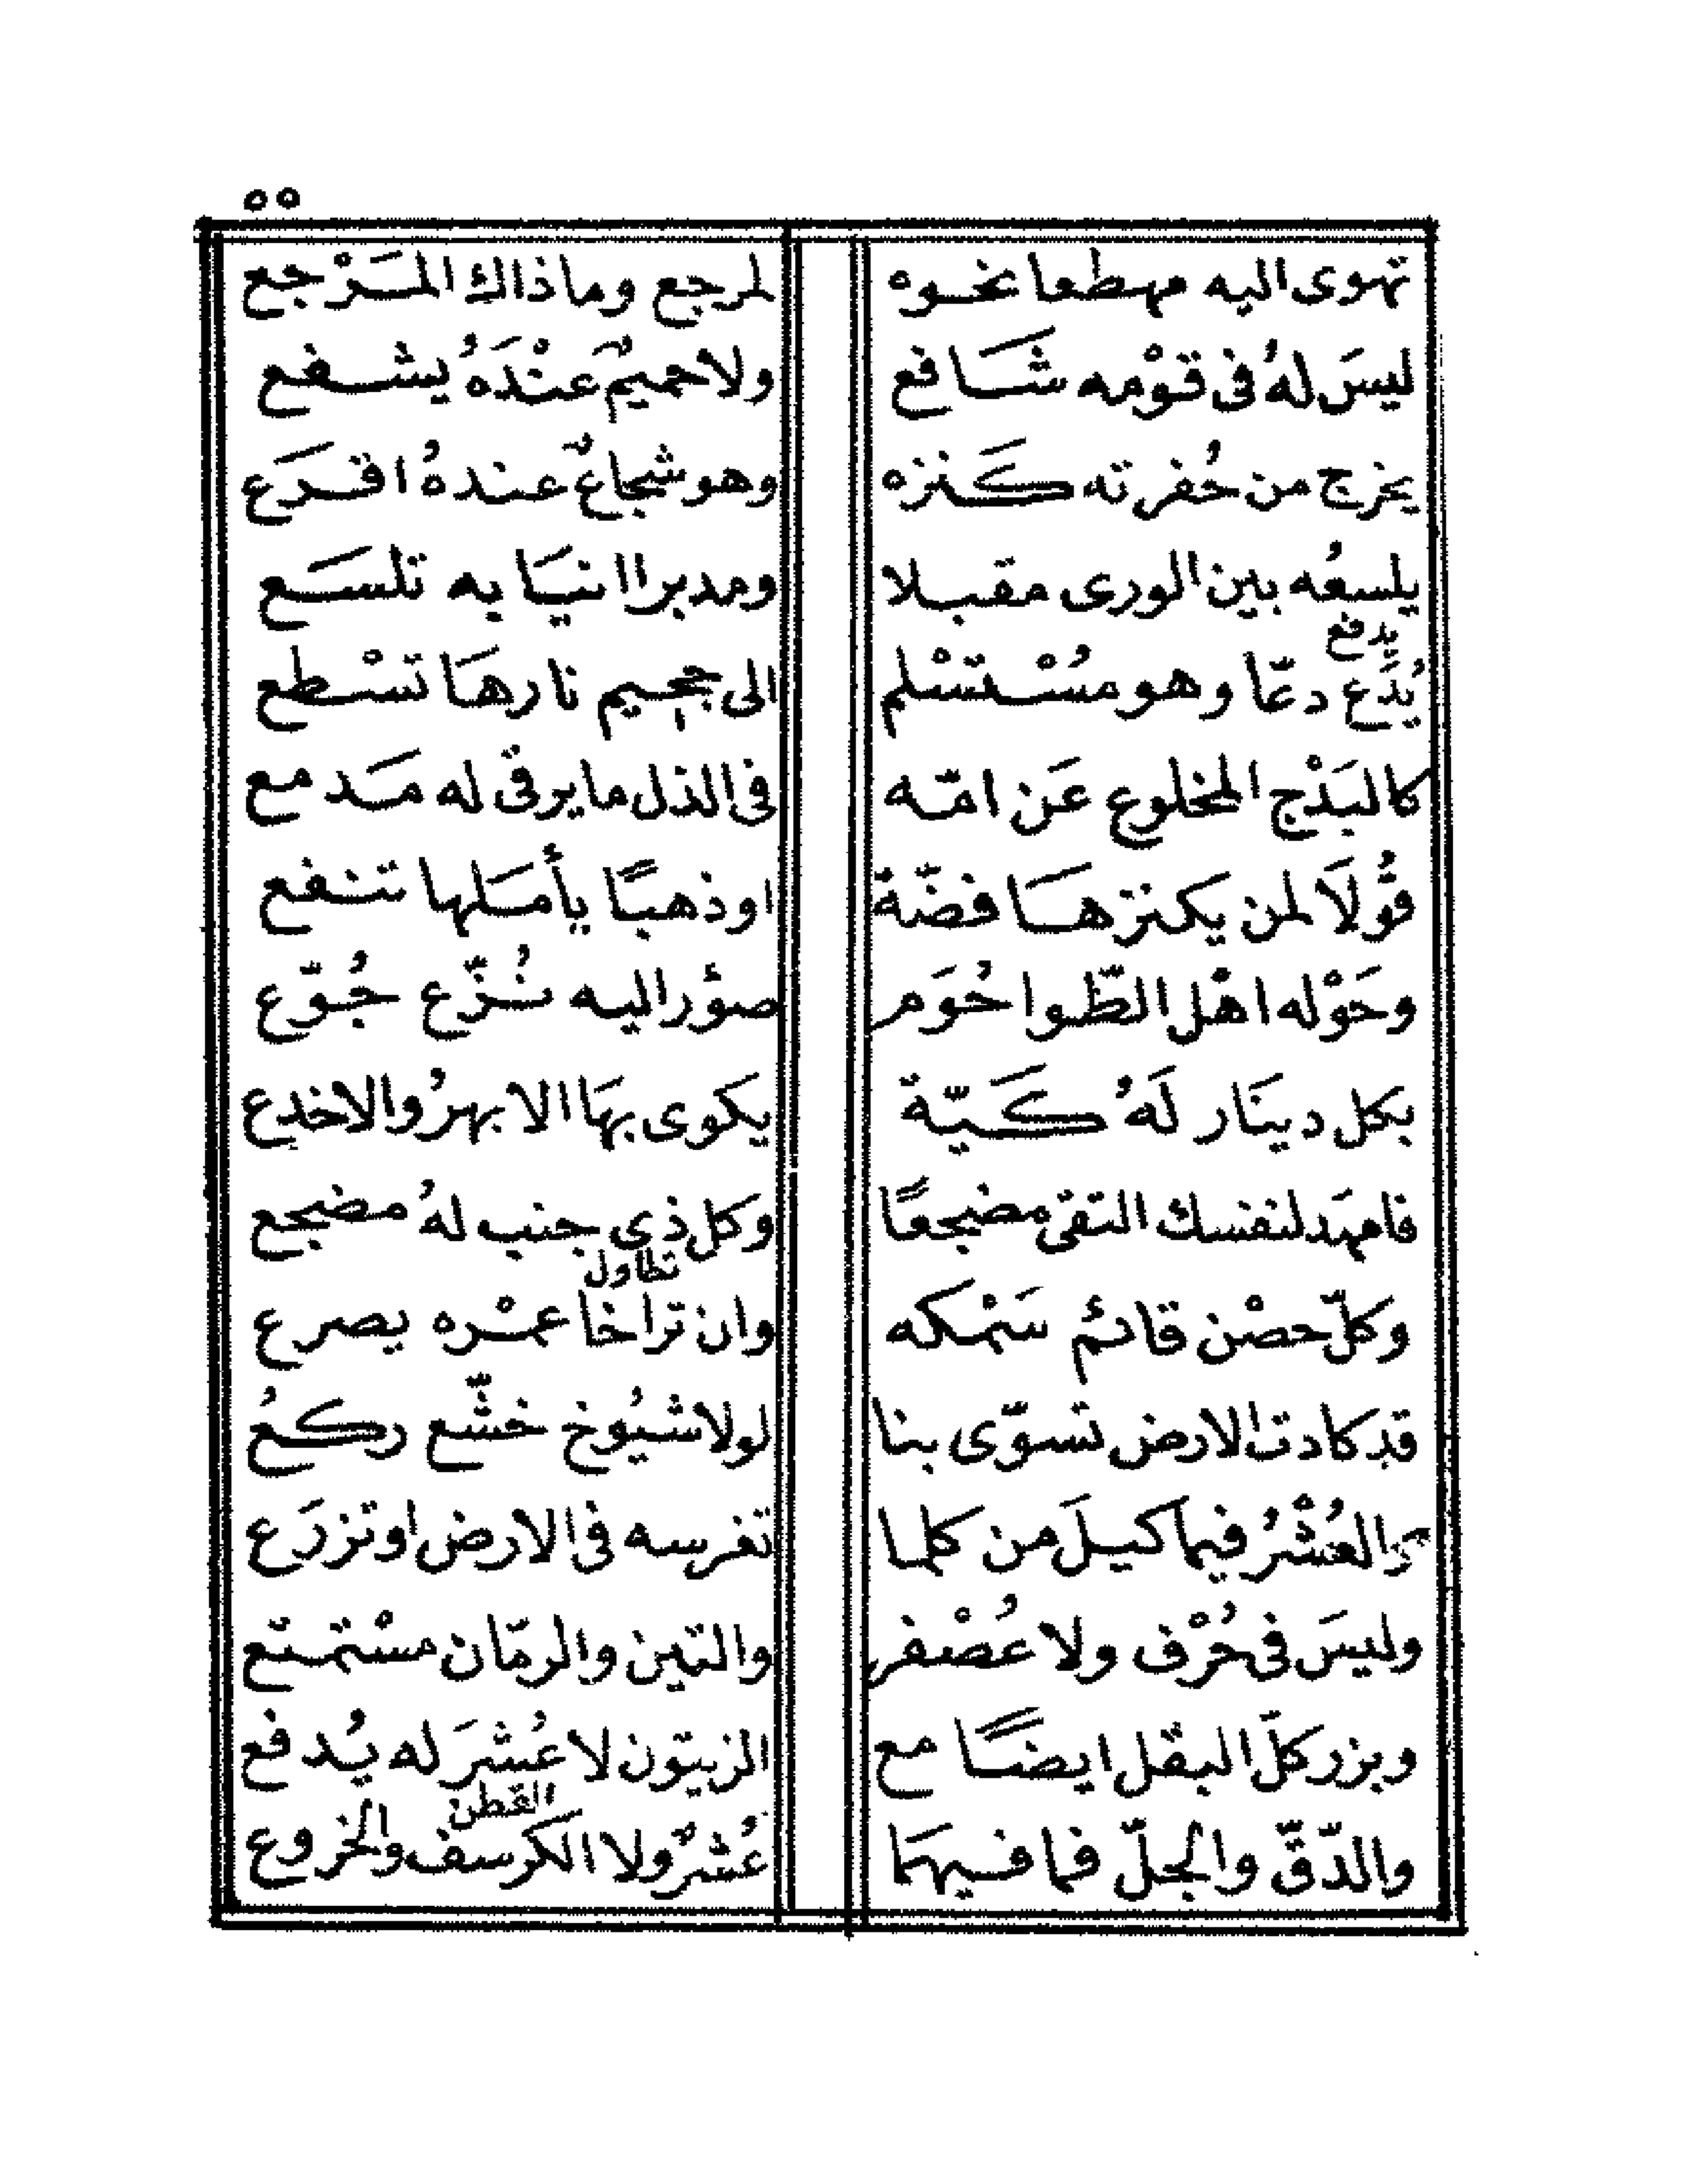 ٥٥
تهوى اليه مهطعا نحوه لمرجع وما ذاك المَرْجع
ليسَ لهُ فى قوْمه شَافع ولا حميمٌ عنْدَهُ يشفع
يخرج من حُفرته كَنزه وهو شجاعٌ عندهُ اقرَع
يلسعُه بين الورى مقبلا ومدبرا انيَابه تلسَع
يدفع
يُدَّع دعّا وهو مُسْتسْلم الى جحيم نارهَا تسْطع
كالبَذْج المخلوع عَن امّه فى الذل ما يرقى له مَدمع
قُولَا لمن يكنزهَا فضّة او ذهبًا يأمَلها تنفع
وحَوْله اهْل الطّوا حُوَم صؤر اليه نُزّع جُوّع
بكل دينَار لَهُ كَيّة يكوى بهَا الابهرُ والاخدع
فامهَد لنفسك التقى مضجعًا وكل ذى جنب لهُ مضجع
تطاول
وكلّ حصْن قائم سَمْكه وان تراخا عمْره يصرع
قد كادت الارض تسوّى بنا لولا شيُوخ خشّع ركعُ
والعُشْرُ فيما كيلَ من كلما تغرسه فى الارض او تزرَع
وليسَ فى حُرْف ولا عُصْفر والتين والرمّان مسْتمتع
وبزر كلّ البقل ايضًا مع الزيتون لا عُشرَ له يُدفع
القطن
والدّقّ والجلّ فما فيهمَا عُشرٌ ولا الكرسف والخروع